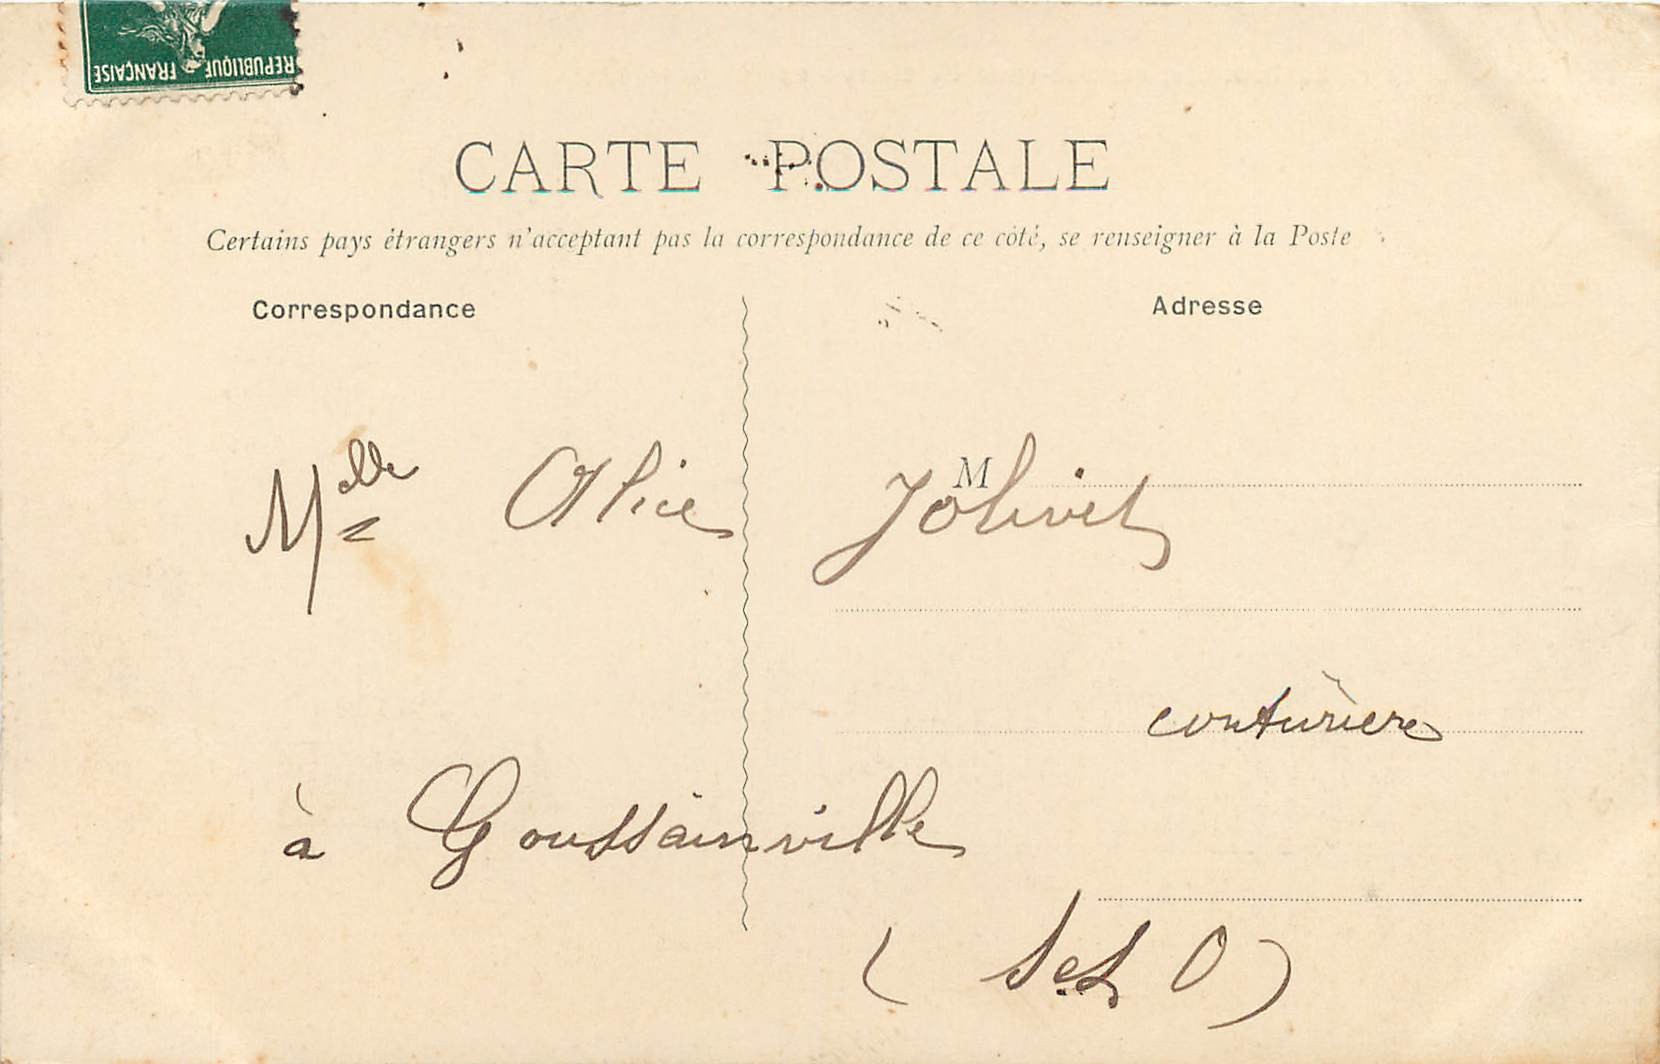 REPUBLIQUE FRANÇAISE
CARTE POSTALE
Certains pays étrangers n'acceptant pas la correspondance de ce côté, se renseigner à la Poste
Correspondance
Adresse
M
Melle Alice Jolivet
couturière
à Goussainville
(S et O)